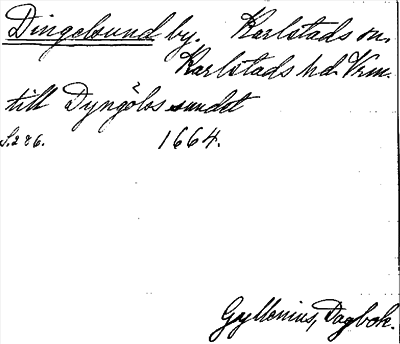 Dingelsund by. Karlstads sn.
Karlstads hd. Vrm.
till Dyngölos sundet
S. 286. 1664.
Gyllenius, Dagbok.